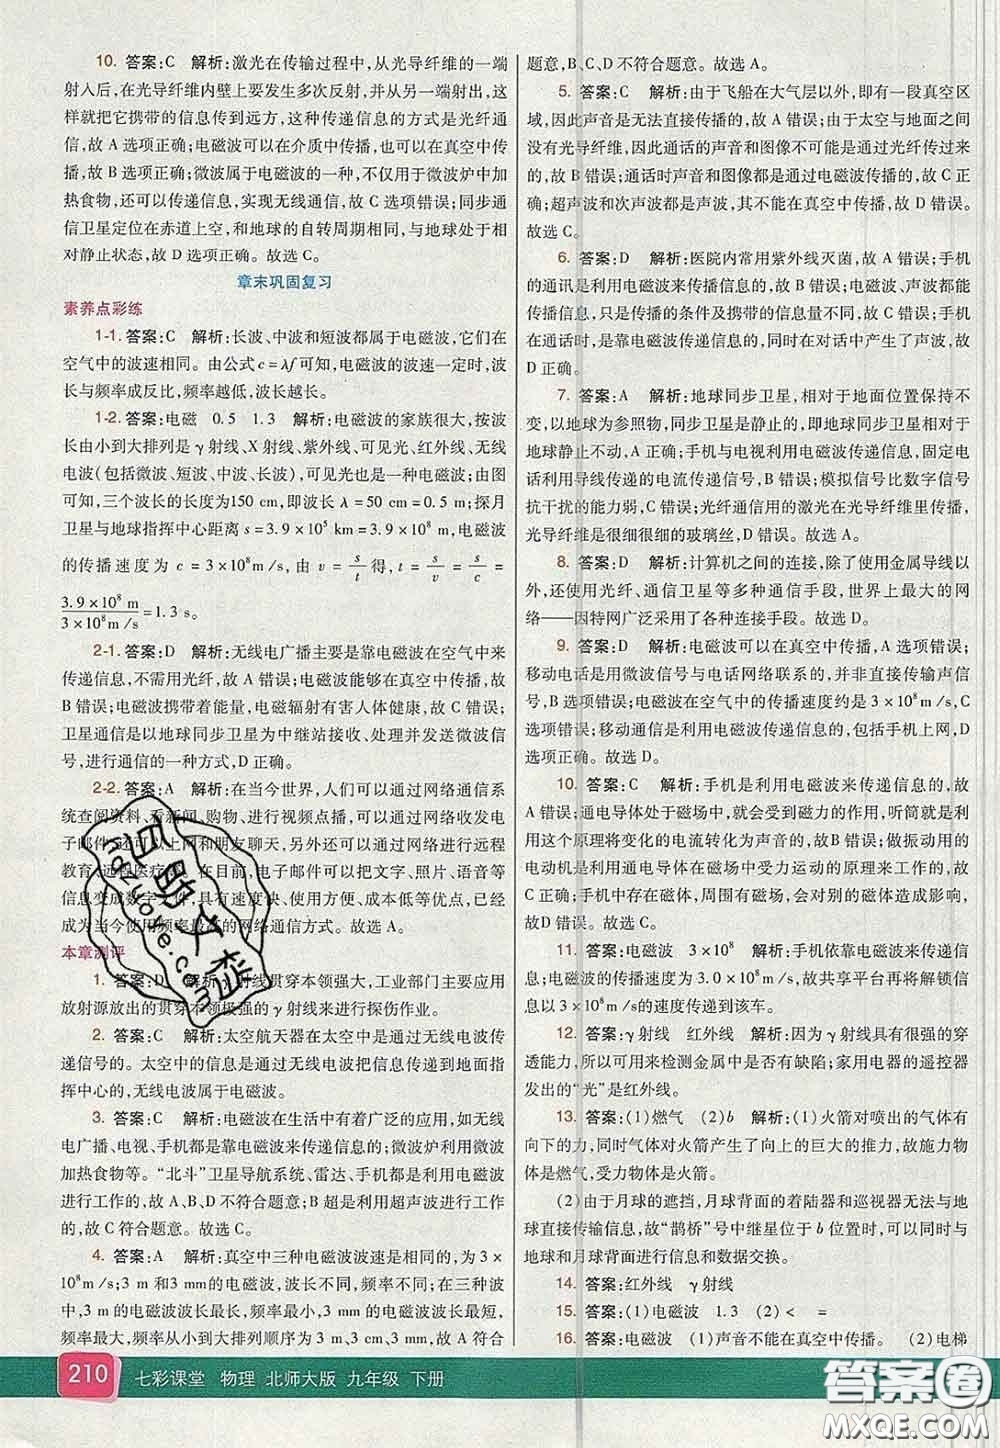 10. 答案:C 解析:激光在传输过程中,从光导纤维的一端
射入后,在光导纤维内壁上要发生多次反射,并从另一端射出,这
样就把它携带的信息传到远方,这种传递信息的方式是光纤通
信,故 A 选项正确;电磁波可以在介质中传播,也可以在真空中传
播,故 B 选项正确;微波属于电磁波的一种,不仅用于微波炉中加
热食物,还可以传递信息,实现无线通信,故 C 选项错误;同步通
信卫星定位在赤道上空,和地球的自转周期相同,与地球处于相
对静止状态,故 D 选项正确。故选 C。
章末巩固复习
素养点彩练
1-1. 答案:C 解析:长波、中波和短波都属于电磁波,它们在
空气中的波速相同。由公式 c=λf 可知,电磁波的波速一定时,波
长与频率成反比,频率越低,波长越长。
1-2. 答案:电磁 0.5 1.3 解析:电磁波的家族很大,按波
长由小到大排列是 γ 射线、X 射线、紫外线、可见光、红外线、无线
电波(包括微波、短波、中波、长波),可见光也是一种电磁波;由图
可知,三个波长的长度为150 cm,即波长 λ=50 cm=0.5 m;探月
卫星与地球指挥中心距离 s=3.9×10⁵ km=3.9×10⁸ m,电磁波
的传播速度为 c=3×10⁸ m/s,由 v=s/t 得,t=s/v=s/c=
3.9×10⁸ m/3×10⁸ m/s=1.3 s。
2-1. 答案:D 解析:无线电广播主要是靠电磁波在空气中来
传递信息,不需用光纤,故 A 错误;电磁波能够在真空中传播,故 B
错误;电磁波携带着能量,电磁辐射有害人体健康,故 C 错误;
卫星通信是以地球同步卫星为中继站接收、处理并发送微波信
号,进行通信的一种方式,D 正确。
2-2. 答案:A 解析:在当今世界,人们可以通过网络通信系
统查阅资料、看新闻、购物、进行视频点播,可以通过网络收发电
子邮件,还可以上网和朋友聊天,另外还可以通过网络进行远程
教育、远程医疗等。在目前,电子邮件可以把文字、照片、语音等
信息变成数字文件,具有速度快、使用方便、成本低等优点,已经
成为当今使用频率最高的网络通信方式。故选 A。
本章测评
1. 答案:D 解析:γ射线贯穿本领强大,工业部门主要应用
放射源放出的贯穿本领极强的 γ 射线来进行探伤作业。
2. 答案:C 解析:太空航天器在太空中是通过无线电波传
递信号的。太空中的信号是通过无线电波把信息传递到地面指
挥中心的,无线电波属于电磁波。
3. 答案:C 解析:电磁波在生活中有着广泛的应用,如无线
电广播、电视、手机都是靠电磁波来传递信息的;微波炉利用微波
加热食物等。“北斗”卫星导航系统、雷达、手机都是利用电磁波
进行工作的,故 A、B、D 不符合题意;B 超是利用超声波进行工作
的,故 C 符合题意。故选 C。
4. 答案:A 解析:真空中三种电磁波波速是相同的,为 3×
10⁸ m/s;3 m 和 3 mm 的电磁波,波长不同,频率不同;在三种波
中,3 m 的电磁波波长最长,频率最小,3 mm 的电磁波波长最短,
频率最大,故从小到大排列顺序为 3 m、3 dm、3 mm,故 A 符合
题意,B、C、D 不符合题意。故选 A。
5. 答案:C 解析:由于飞船在大气层以外,即有一段真空区
域,因此声音是无法直接传播的,故 A 错误;由于太空与地面之间
没有光导纤维,因此通话的声音和图像不可能是通过光纤传过来
的,故 B 错误;通话时声音和图像都是通过电磁波传播的,故 C 正
确;超声波和次声波都是声波,其不能在真空中传播,故 D 错误。
故选 C。
6. 答案:D 解析:医院内常用紫外线灭菌,故 A 错误;手机
的通讯是利用电磁波来传播信息的,故 B 错误;电磁波、声波都能
传播信息,只是传播的条件及携带的信息量不同,故 C 错误;手机
是靠电磁波传递信息的,同时在对话中产生了声波,故 D 正确。故选
D 正确。
7. 答案:A 解析:地球同步卫星,相对于地面位置保持不
变,以地球为参照物,同步卫星是静止的,即地球同步卫星相对于
地球静止不动,A 正确;手机与电视利用电磁波传递信息,固定电
话利用导线传递的电流传递信号,B 错误;模拟信号比数字信号
抗干扰的能力弱,C 错误;光纤通信用的激光在光导纤维里传播,
光导纤维是很细很细的玻璃丝,D 错误。故选 A。
8. 答案:D 解析:计算机之间的连接,除了使用金属导线以
外,还使用光纤、通信卫星等多种通信手段,世界上最大的网
络——因特网广泛采用了各种连接手段。故选 D。
9. 答案:D 解析:电磁波可以在真空中传播,A 选项错误;
移动电话是用微波信号与电话网络联系的,并非直接传输声信
号,B 选项错误;电磁波在空气中的传播速度约是 3×10⁸ m/s,C
选项错误;移动通信是利用电磁波传递信息的,包括手机上网,D
选项正确。故选 D。
10. 答案:C 解析:手机是利用电磁波来传递信息的,故
A 错误;通电导体处于磁场中,就会受到磁力的作用,听筒就是利
用这个原理将变化的电流转化为声音的,故 B 错误;做振动用的
电动机是利用通电导体在磁场中受力运动的原理来工作的,故
C 正确;手机中存在磁体,周围有磁场,会对别的磁体造成影响,
故D 错误。故选 C。
11. 答案:电磁波 3×10⁸ 解析:手机依靠电磁波来传递信
息;电磁波的传播速度为 3.0×10⁸ m/s,故共享平台再将解锁信
息以 3×10⁸ m/s的速度传递到该车。
12. 答案:γ 射线 红外线 解析:因为 γ 射线具有很强的穿
透能力,所以可用来检测金属中是否有缺陷;家用电器的遥控器
发出的“光”是红外线。
13. 答案:(1)燃气 (2)b 解析:(1)火箭对喷出的气体有
向下的力,同时气体对火箭产生了向上的巨大的推力,故施力物
体是燃气,受力物体是火箭。
(2)由于月球的遮挡,月球背面的着陆器和巡视器无法与地
球直接传输信息,故“鹊桥”号中继星位于 b 位置时,可以同时与
地球和月球背面进行信息和数据交换。
14. 答案:红外线 γ 射线
15. 答案:(1)电磁波 1.3 (2)< =
16. 答案:电磁波 (1)声音不能在真空中传播。 (2)电梯
210 七彩课堂 物理 北师大版 九年级 下册
答案圈
MXQE.COM